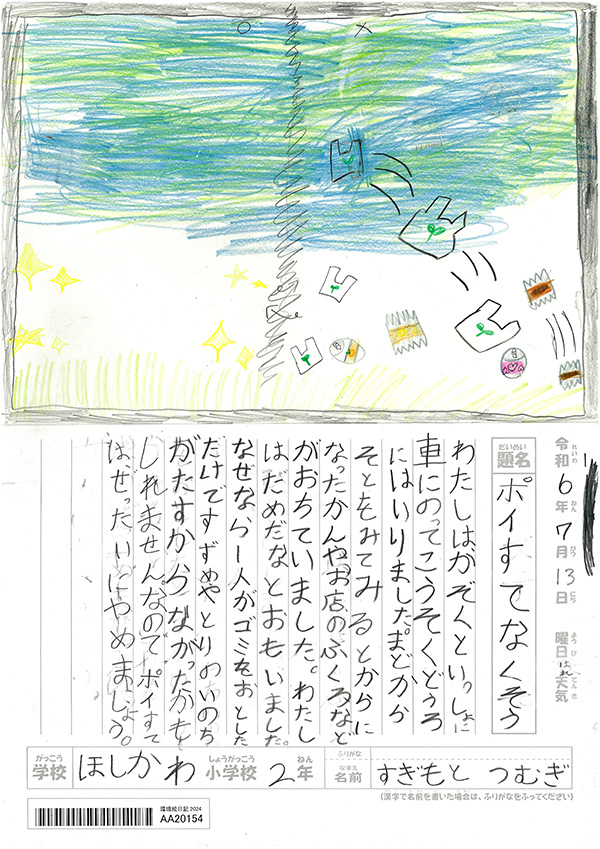 令和6年7月13日 曜日 天気 はれ
れいわ ねん がつ にち ようび てんき
だいめい
題名 ポイすてなくそう
わたしはかぞくといっしょに
車にのってこうそくどうろ
にはいりました。まどから
そともみてみるとからに
なったかんやお店のふくろなど
がおちていました。わたし
はだめだなとおもいました。
なぜなら一人がゴミをおとした
たけですずめやとりのいのち
がたすからなかったかも
しれません。なのでポイすて
はぜったいにやめましょう。
がっこう しょうがっこう ねん ふりがな なまえ
学校 ほしかわ 小学校 2年 名前 すぎもと つむぎ
(漢字で名前を書いた場合は、ふりがなをふってください)
環境絵日記2024
AA20154